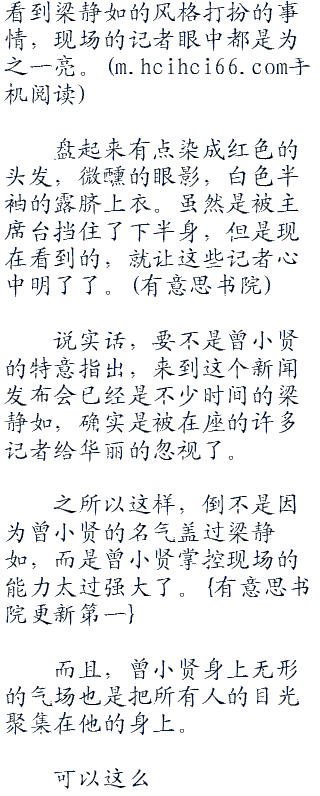 看到梁静如的风格打扮的事
情，现场的记者眼中都是为
之一亮。(m.hcihci66.com手
机阅读)
盘起来有点染成红色的
头发，微醺的眼影，白色半
袖的露脐上衣。虽然是被主
席台挡住了下半身，但是现
在看到的，就让这些记者心
中明了了。(有意思书院)
说实话，要不是曾小贤
的特意指出，来到这个新闻
发布会已经是不少时间的梁
静如，确实是被在座的许多
记者给华丽的忽视了。
之所以这样，倒不是因
为曾小贤的名气盖过梁静
如，而是曾小贤掌控现场的
能力太过强大了。{有意思书
院更新第一}
而且，曾小贤身上无形
的气场也是把所有人的目光
聚集在他的身上。
可以这么